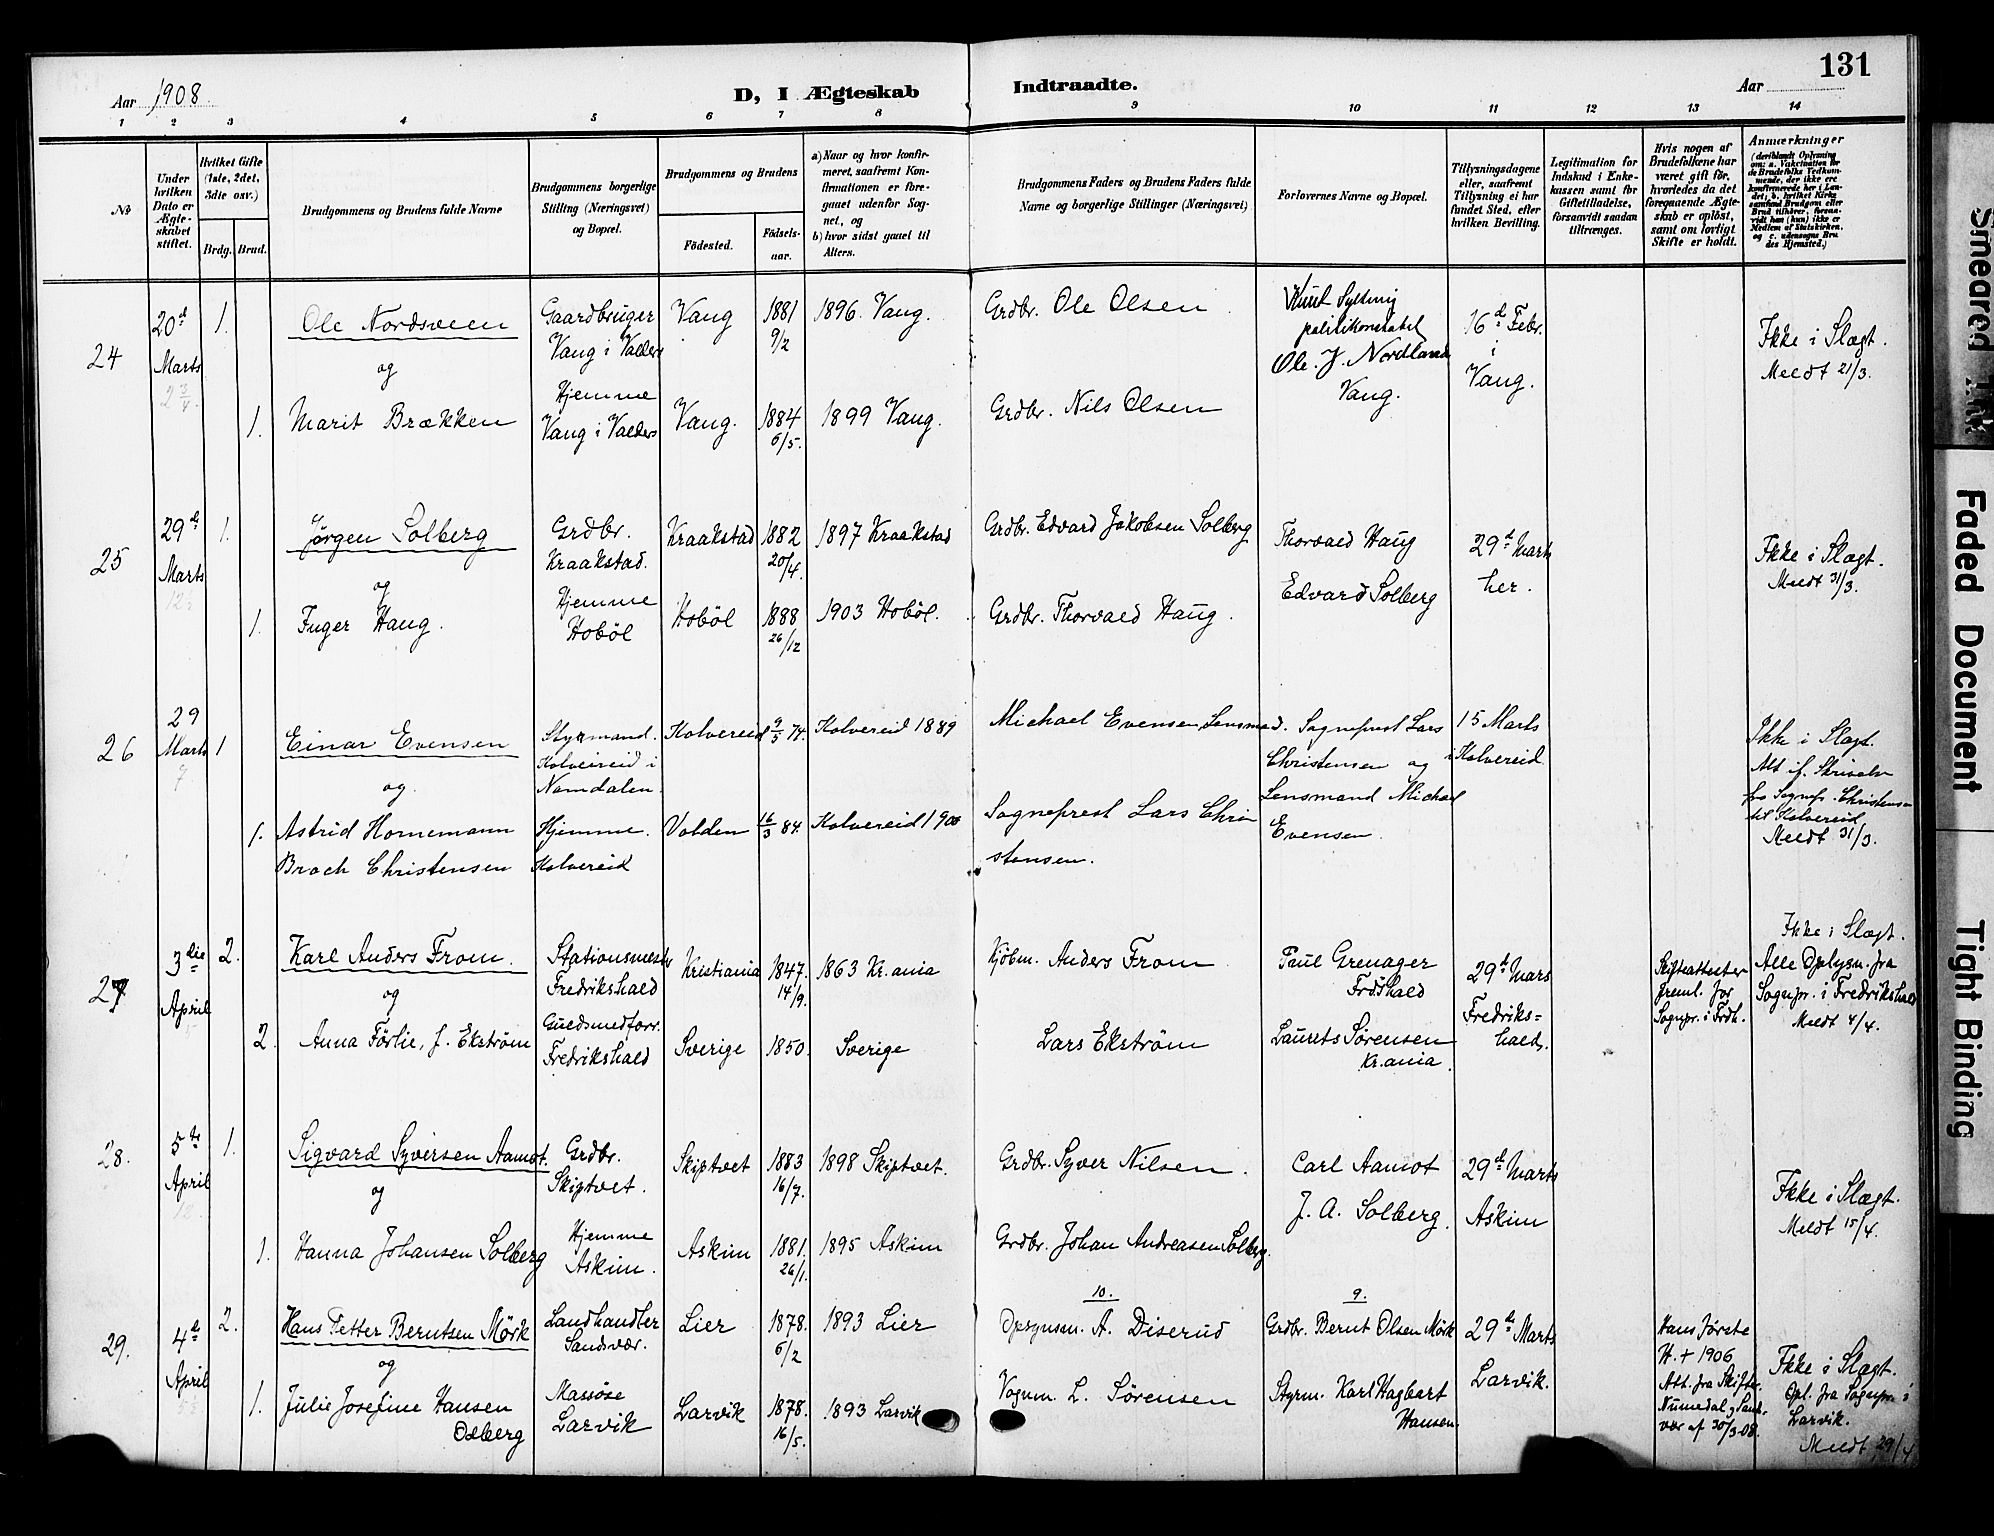 131
Aar 1908
D, I Ægteskab Indtraadte.
Aar
1 2 3 4 5 6 7 8 9 10 11 12 13 14
No
Under hvilken Dato er Ægteskabet stiftet.
Hvilket Gifte (1ste, 2det, 3die osv.)
Brdg. Brud.
Brudgommens og Brudens fulde Navne
Brudgommens borgerlige Stilling (Næringsvei) og Bopæl.
Brudgommens og Brudens
Fødested. Fødselsaar.
a) Naar og hvor konfirmeret, saafremt Konfirmationen er foregaaet udenfor Sognet, og
b) hvor sidst gaaet til Alters.
Brudgommens Faders og Brudens Faders fulde Navne og borgerlige Stillinger (Næringsvei)
Forlovernes Navne og Bopæl.
Tillysningsdagene eller, saafremt Tillysning ei har fundet Sted, efter hvilken Bevilling.
Legitimation for Indskud i Enkekassen samt for Giftetilladelse, forsaavidt saadan tiltrænges.
Hvis nogen af Brudefolkene har været gift før, hvorledes da det foregaaende Ægteskab er opløst, samt om lovligt Skifte er holdt.
Anmærkninger
(deriblandt Oplysning om: a. Vakcination for de Brudefolks Vedkommende, der ikke ere konfirmerede her i Landet, b. hvilket Kirkesamfund Brudgom eller Brud tilhører, forsaavidt han (hun) ikke er Medlem af Statskirken, og c. udensogns Brudes Hjemsted.)
24
20d Marts
1.
Ole Nordsveen
Gaardbruger Vang i Valders
Vang
1881 9/2
1896. Vang.
Grdbr. Ole Olsen
Knut Syltevig politikonstabel
Ole. J. Nordland Vang.
16d Febr. i Vang.
Ikke i Slægt.
Meldt 21/3.
og
1.
Marit Brækken
Hjemme Vang i Valders
Vang.
1884 6/5.
1899 Vang.
Grdbr. Nils Olsen
25
29d Marts
1.
Jørgen Solberg
Grdbr. Kraakstad.
Kraakstad
1882 20/4.
1897 Kraakstad
Grdbr. Edvard Jakobsen Solberg
Thorvald Haug
Edvard Solberg
29d Marts her.
Ikke i Slægt.
Meldt 31/3.
og
1.
Inger Haug.
Hjemme Hobøl
Hobøl
1888 26/12
1903 Hobøl.
Grdbr. Thorvald Haug.
26
29 Marts
1
Einar Evensen
Styrmand. Kolvereid i Namdalen.
Kolvereid
9/5 74.
Kolvereid 1889
Michael Evensen Lensmad.
Sogneprest Lars Christensen og Lensmand Michael Evensen.
15 Marts i Kolvereid
Ikke i Slægt.
Alt if. Skrivelse fra Sognepr. Christensen til Kolvereid
Meldt 31/3.
og
1.
Astrid Hornemann Broch Christensen
Hjemme. Kolvereid
Volden
16/3 84.
Kolvereid 1900
Sogneprest Lars Christensen.
27
3die April
2.
Karl Anders From.
Stationsmester Fredrikshald
Kristiania
1847. 14/9.
1863 Kr.ania
Kjøbm. Anders From
Paul Grenager Frdshald
Laurets Sørensen Kr.ania
29d Mars Fredrikshald.
Skifteattester freml. for Sognpr. i Frdh.
Ikke i Slægt.
Alle Oplysn. fra Sognpr. i Fredrikshald
Meldt 4/4.
og
2.
Anna Förlie, f. Ekström
Guldsmedforr. Fredrikshald
Sverige
1850.
Sverige
Lars Ekström
28.
5te April
1.
Sigvard Syversen Aamot.
Grdbr. Skiptvet.
Skiptvet
1883 16/7.
1898 Skiptvet.
Grdbr. Syver Nilsen.
Carl Aamot
J. A. Solberg.
29d Marts Askim
Ikke i Slægt.
Meldt 15/4.
og
1.
Hanna Johansen Solberg
Hjemme Askim.
Askim
1881. 26/1.
1895 Askim
Grdbr. Johan Andreasen Solberg.
29.
4d April
2.
Hans Petter Berntsen Mörk
Landhandler Sandsvær.
Lier
1878. 6/2
1893 Lier
10.
Opsynsm. A. Diserud
9.
Grdbr. Bernt Olsen Mörk
29d Marts Larvik.
Hans første H. + 1906
Att. fra Skifter. Numedal og Sandsvær af 30/3-08.
Ikke i Slægt.
Opl. fra Sognpr. i Larvik.
Meldt 29/4
og
1.
Julie Josefine Hansen Odberg
Massøse Larvik
Larvik
1878. 16/5.
1893 Larvik
Vognm. L. Sørensen
Styrm. Karl Hagbart Hansen.
Smeared Ink
Faded Document
Tight Binding